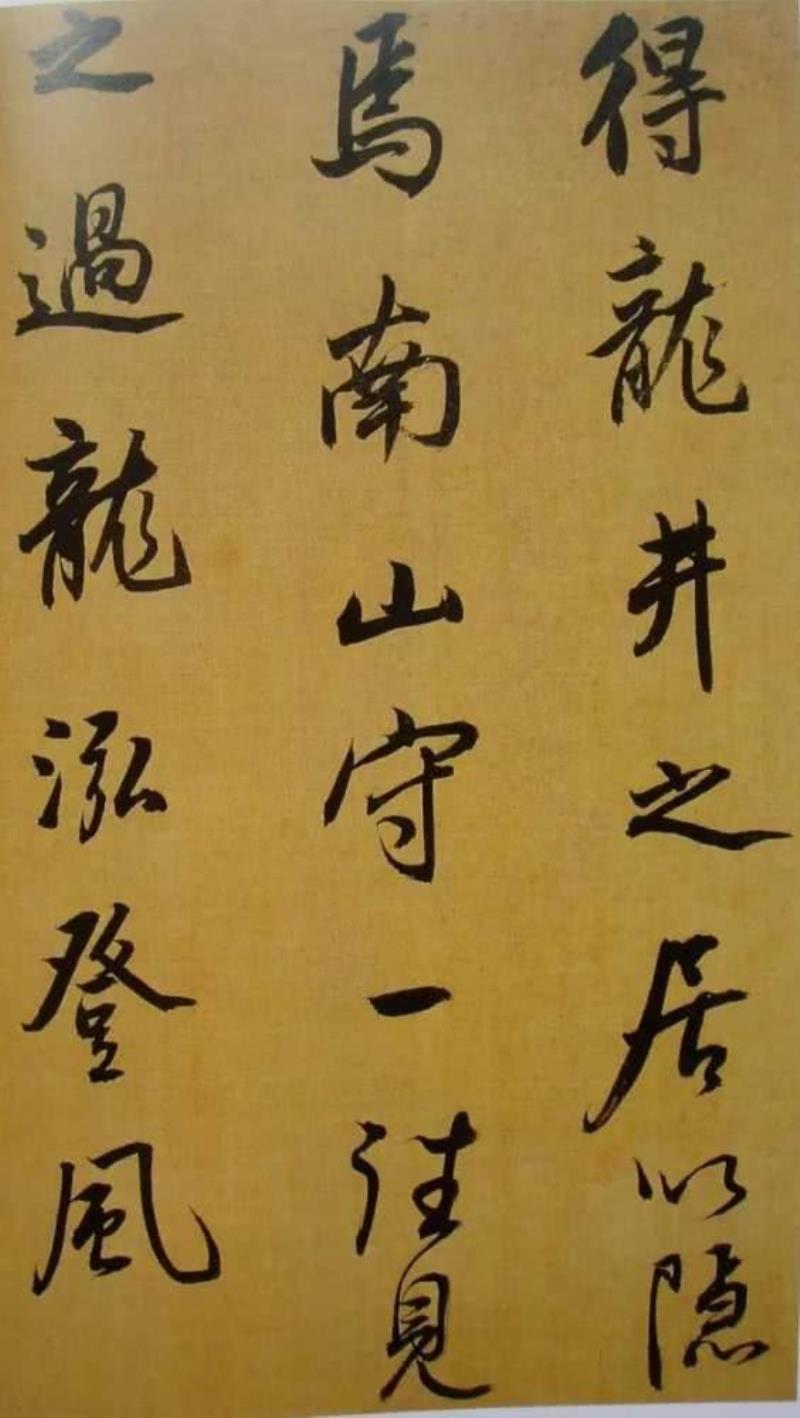 得龍井之居以隱
焉南山守一往見
之過龍泓登風